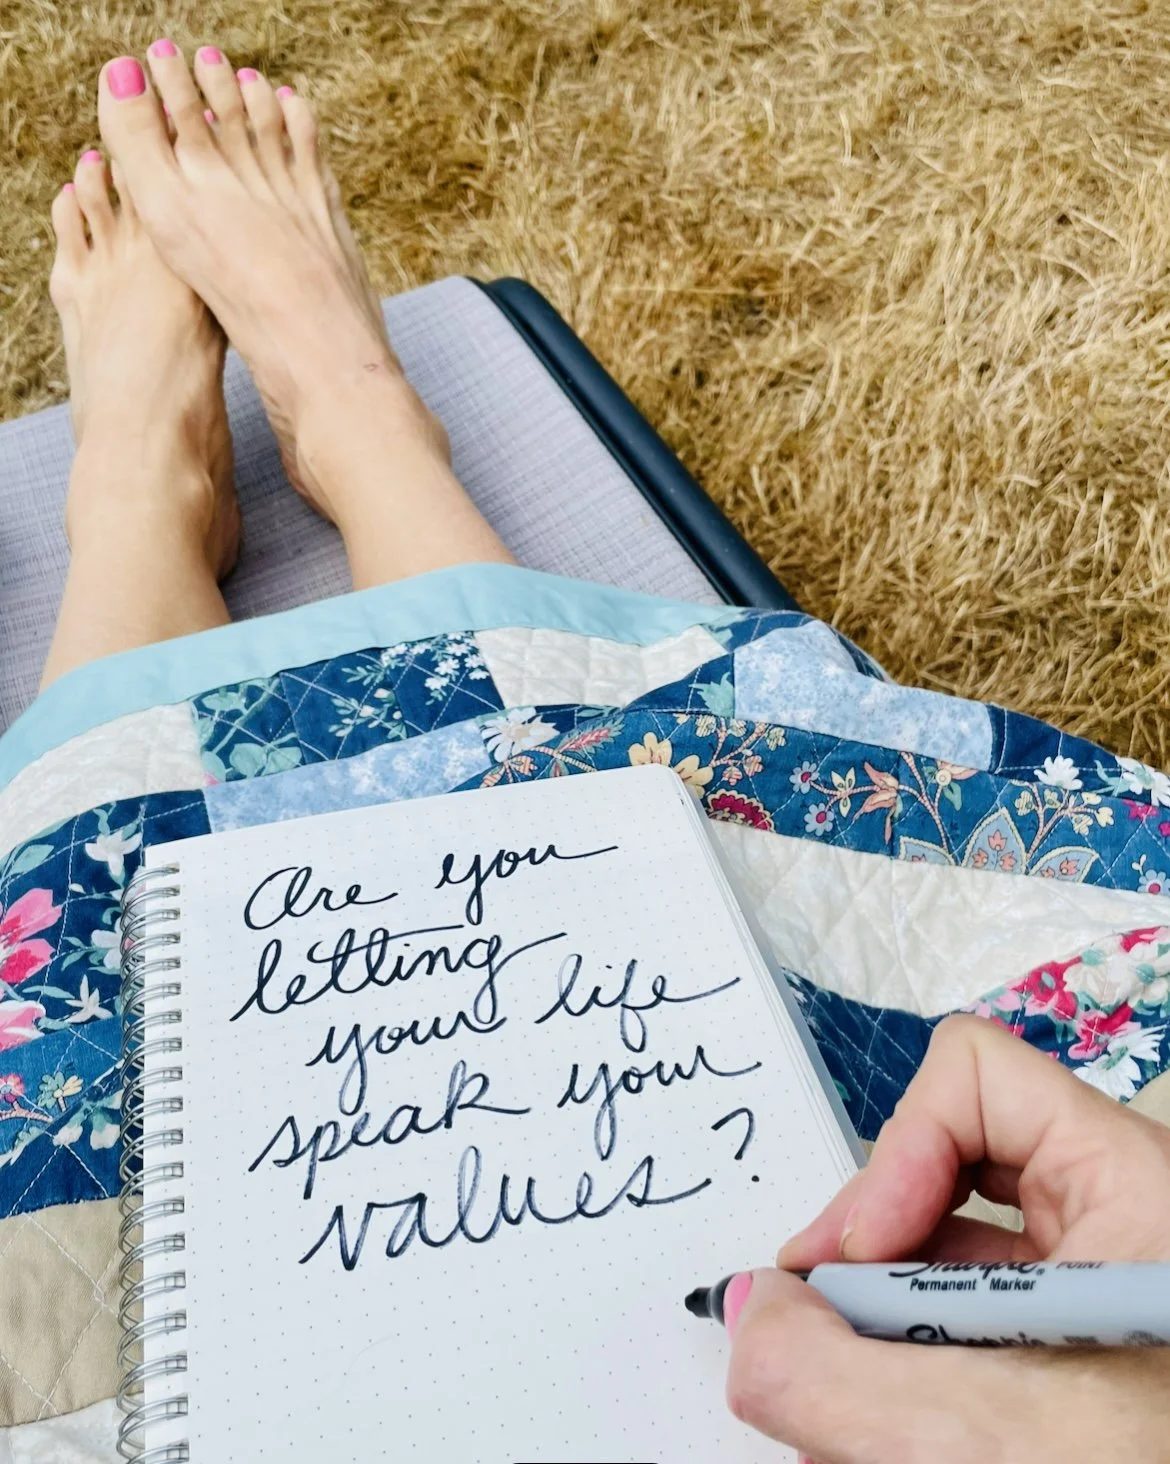 Are you
letting
your life
speak your
values?
Sharpie® POINT
Permanent Marker
Sharpie FINE